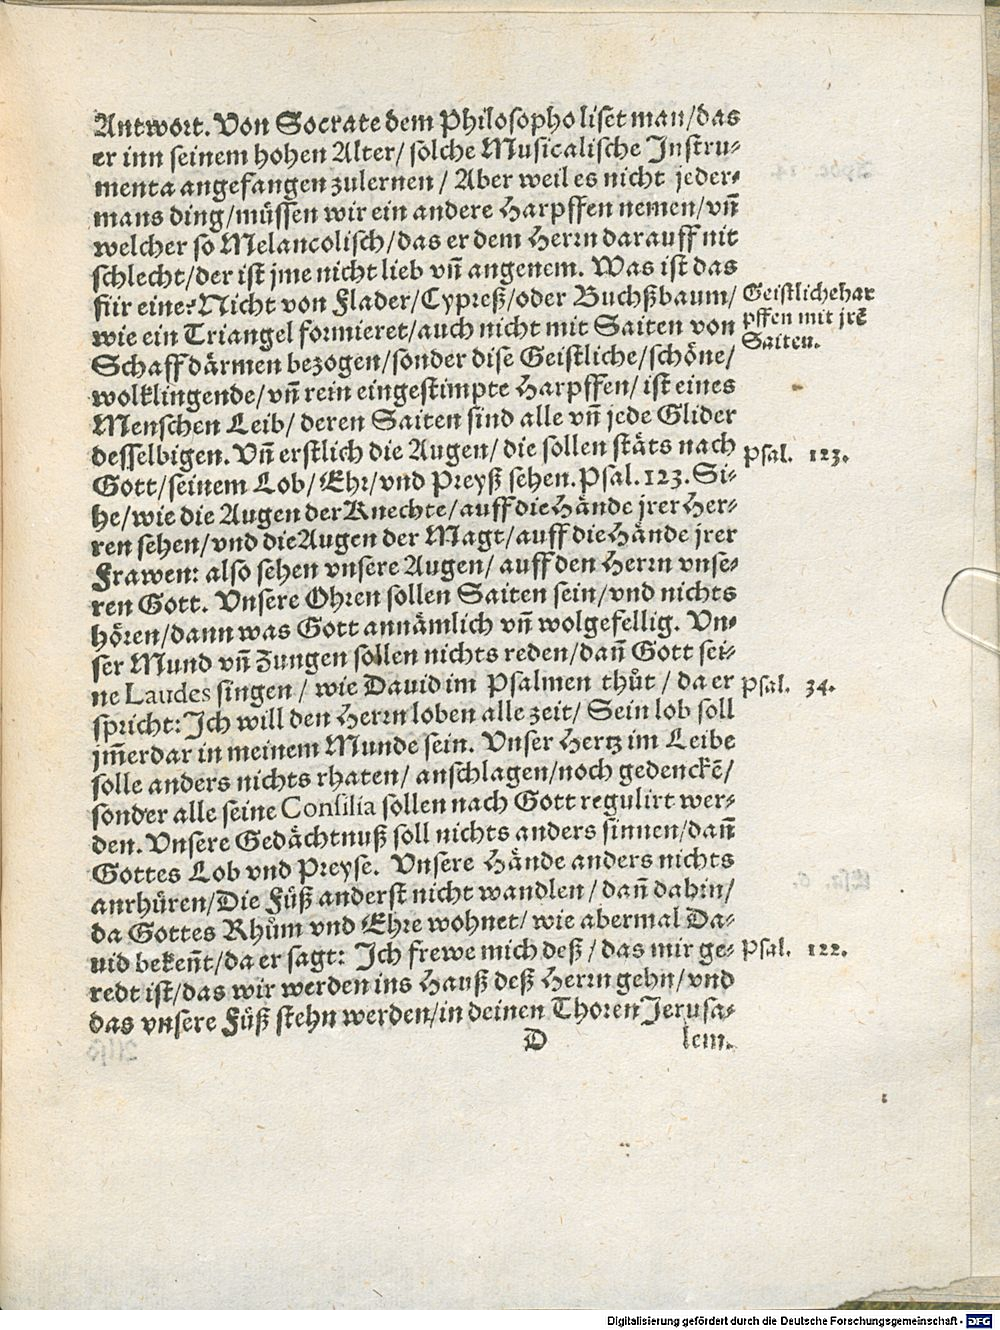 Antwort. Von Socrate dem Philosopho liset man/das
er inn seinem hohen Alter/ solche Musicalische Instru-
menta angefangen zulernen / Aber weil es nicht jeder-
mans ding/müssen wir ein andere Harpffen nemen/vñ
welcher so Melancolisch/das er dem Herrn darauff nit
schlecht/der ist jme nicht lieb vñ angenem. Was ist das
für eine? Nicht von Flader/Cypreß/oder Buchßbaum/
Geistliche har
wie ein Triangel formieret/auch nicht mit Saiten von
pffen mit jrẽ
Saiten.
Schaffdärmen bezogen/sonder dise Geistliche/schöne/
wolklingende/vñ rein eingestimpte Harpffen/ ist eines
Menschen Leib/ deren Saiten sind alle vñ jede Glider
desselbigen. Vñ erstlich die Augen/ die sollen stäts nach
Psal. 123.
Gott/seinem Lob/ Ehr/vnd Preyß sehen. Psal. 123. Si-
he/wie die Augen der Knechte/auff die Hände jrer Her-
ren sehen/vnd die Augen der Magt/auff die Hände jrer
Frawen: also sehen vnsere Augen/ auff den Herrn vnse-
ren Gott. Vnsere Ohren sollen Saiten sein/vnd nichts
hören/dann was Gott annämlich vñ wolgefellig. Vn-
ser Mund vñ Zungen sollen nichts reden/dañ Gott sei-
ne Laudes singen / wie Dauid im Psalmen thůt / da er
Psal. 34.
spricht: Ich will den Herrn loben alle zeit/ Sein lob soll
jm̃erdar in meinem Munde sein. Vnser Hertz im Leibe
solle anders nichts rhaten/ anschlagen/noch gedenckẽ/
sonder alle seine Consilia sollen nach Gott regulirt wer-
den. Vnsere Gedächtnuß soll nichts anders sinnen/dañ
Gottes Lob vnd Preyse. Vnsere Hände anders nichts
anrhüren/Die Füß anderst nicht wandlen / dañ dahin/
da Gottes Rhům vnd Ehre wohnet/ wie abermal Da-
uid bekeñt/da er sagt: Ich frewe mich deß / das mir ge-
Psal. 122.
redt ist/das wir werden ins Hauß deß Herrn gehn/vnd
das vnsere Füß stehn werden/in deinen Thoren Jerusa-
D lem.
Digitalisierung gefördert durch die Deutsche Forschungsgemeinschaft - DFG